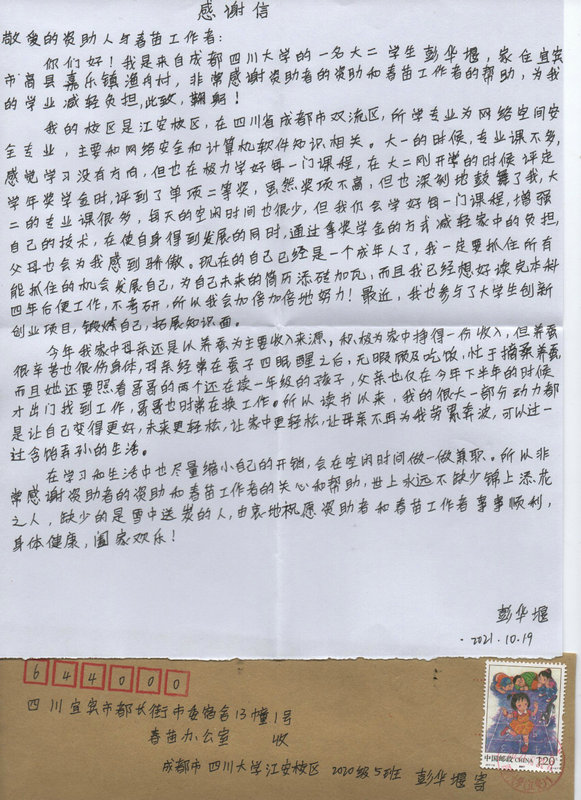 感谢信
敬爱的资助人与春苗工作者：
你们好！我是来自成都四川大学的一名大二学生彭华堰，家住宜宾
市高县嘉乐镇渔舟村，非常感谢资助者的资助和春苗工作者的帮助，为我
的学业减轻负担，此致，鞠躬！
我的校区是江安校区，在四川省成都市双流区，所学专业为网络空间安
全专业，主要和网络安全和计算机软件知识相关。大一的时候，专业课不多，
感觉学习没有方向，但也在极力学好每一门课程，在大二刚开学的时候评定
学年奖学金时，评到了单项二等奖，虽然奖项不高，但也深刻地鼓舞了我，大
二的专业课很多，每天的空闲时间也很少，但我仍会学好每一门课程，增强
自己的技术，在使自身得到发展的同时，通过拿奖学金的方式减轻家中的负担，
父母也会为我感到骄傲。现在的自己已经是一个成年人了，我一定要抓住所有
能抓住的机会发展自己，为自己未来的简历添砖加瓦，而且我已经想好读完本科
四年后便工作，不考研，所以我会加倍加倍地努力！最近，我也参与了大学生创新
创业项目，锻炼自己，拓展知识面。
今年我家中母亲还是以养蚕为主要收入来源。积极为家中挣得一份收入，但养蚕
很辛苦也很伤身体，母亲经常在蚕子四眠醒之后，无暇顾及吃饭，忙于摘桑养蚕，
而且她还要照看哥哥的两个还在读一年级的孩子，父亲也仅在今年下半年的时候
才出门找到工作，哥哥也时常在换工作。所以读书以来，我的很大一部分动力都
是让自己变得更好，未来更轻松，让家中更轻松，让母亲不再为我劳累奔波，可以过一
过含饴弄孙的生活。
在学习和生活中也尽量缩小自己的开销，会在空闲时间做一做兼职。所以非
常感谢资助者的资助和春苗工作者的关心和帮助，世上永远不缺少锦上添花
之人，缺少的是雪中送炭的人，由衷地祝愿资助者和春苗工作者事事顺利，
身体健康，阖家欢乐！
彭华堰
2021.10.19
644000
四川宜宾市都长街市委宿舍13幢1号
春苗办公室 收
成都市四川大学江安校区 2020级5班 彭华堰寄
中国邮政 CHINA 1.20